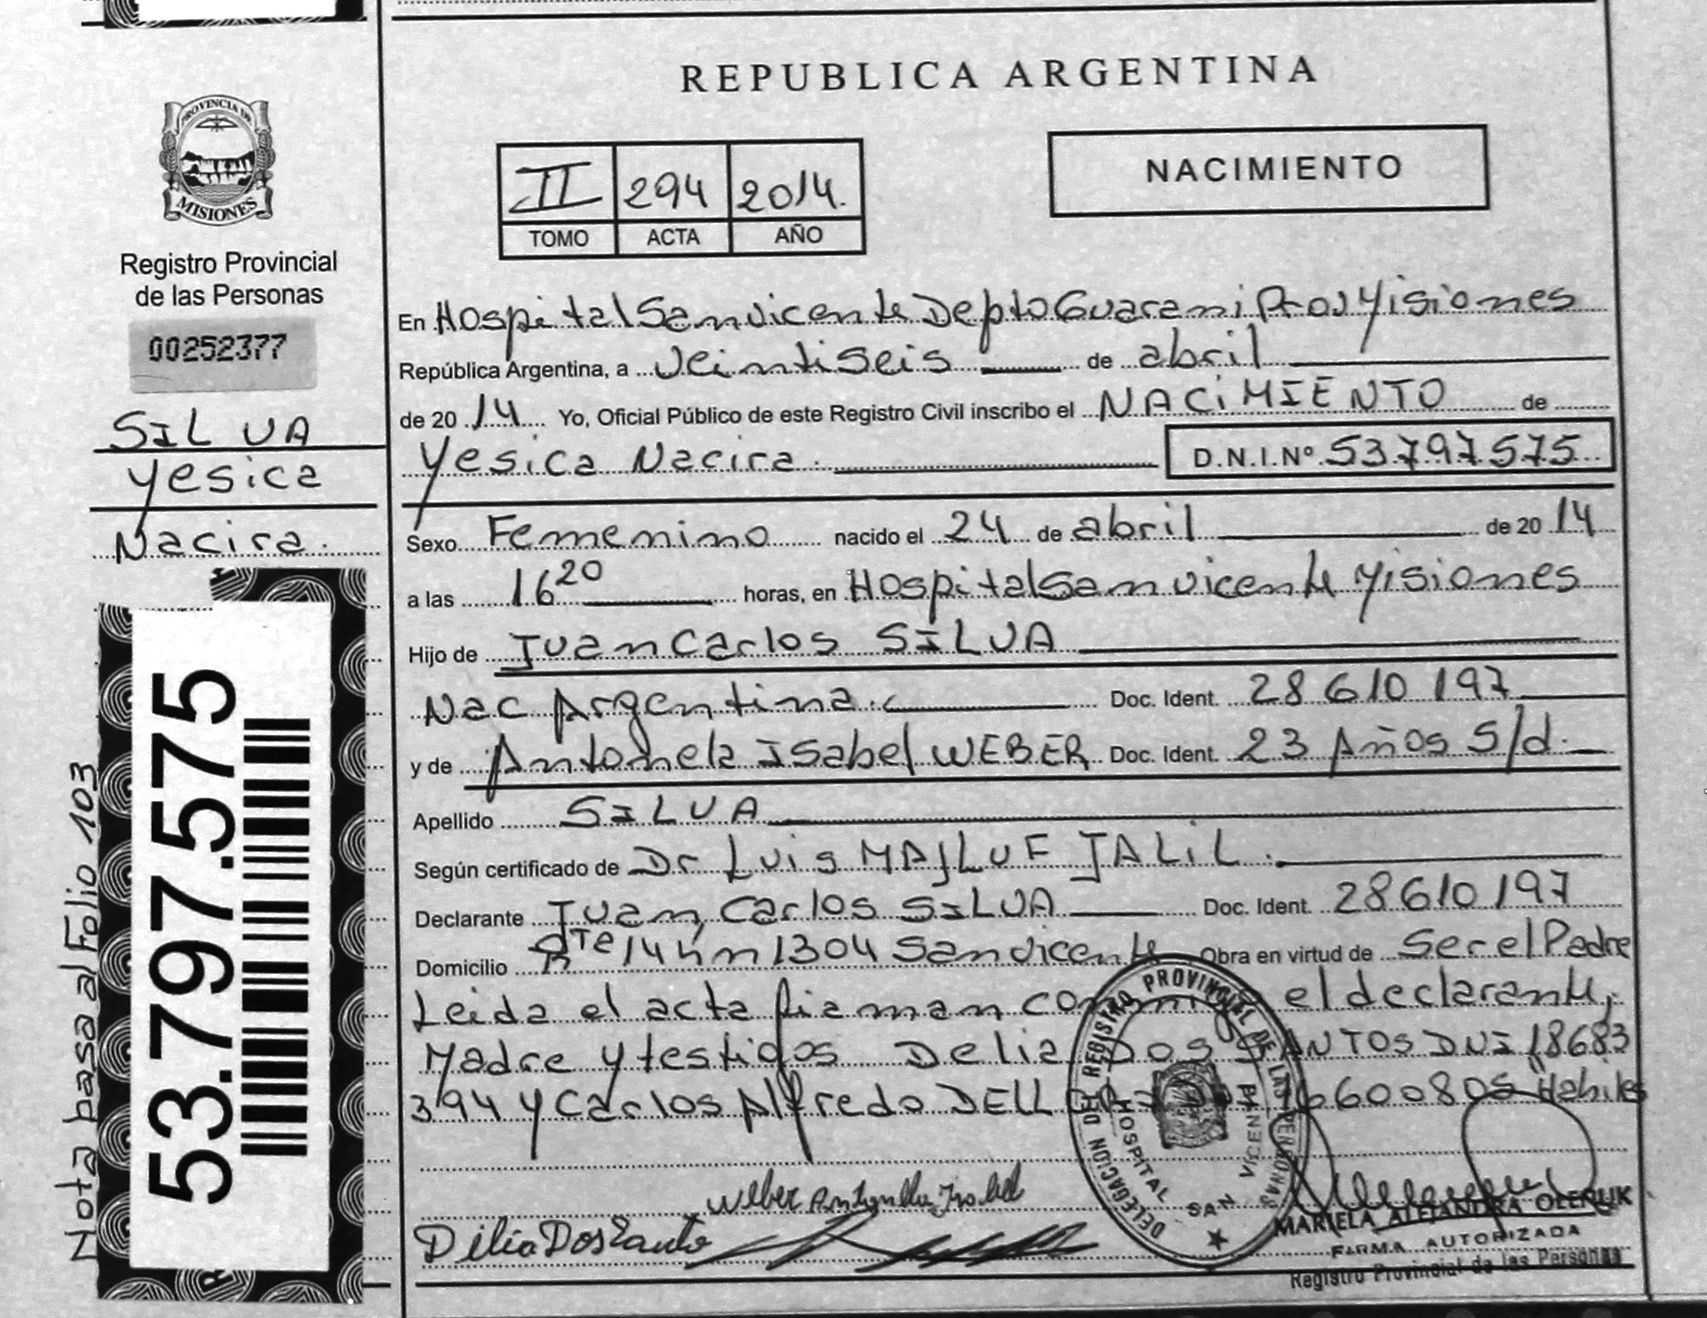 REPUBLICA ARGENTINA
PROVINCIA DE
MISIONES
Registro Provincial
de las Personas
00252377
SILVA
Yesica
Nacira.
53.797.575
Nota pasa al Folio 103
II 294 2014.
TOMO ACTA AÑO
NACIMIENTO
En Hospital San vicente Depto Guarani Prov Misiones
República Argentina, a veintiseis de abril
de 20 14 Yo, Oficial Público de este Registro Civil inscribo el NACIMIENTO de
Yesica Nacira. D.N.I.Nº 53797575
Sexo Femenino nacido el 24 de abril de 20 14
a las 16 20 horas, en Hospital San vicente Misiones
Hijo de Juan Carlos SILVA
Nac Argentina. Doc. Ident. 28 610 197
y de Antonela Isabel WEBER Doc. Ident. 23 Años S/d.
Apellido SILVA
Según certificado de Dr Luis MAJLUF JALIL.
Declarante Juan Carlos SILVA Doc. Ident. 28610197
Domicilio Rte 14 km 1304 San vicente Obra en virtud de Ser el Padre
Leida el acta firman conmigo el declarante,
Madre y testigos Delia Dos SANTOS DNI 18683
394 y Carlos Alfredo 6600805 Habiles
Weber Antonella Isabel
Dilia Dos Santo
DELEGACION DEL REGISTRO PROVINCIAL DE LAS PERSONAS
HOSPITAL SAN VICENTE
MARIELA ALEJANDRA
FIRMA AUTORIZADA
Registro Provincial de las Personas